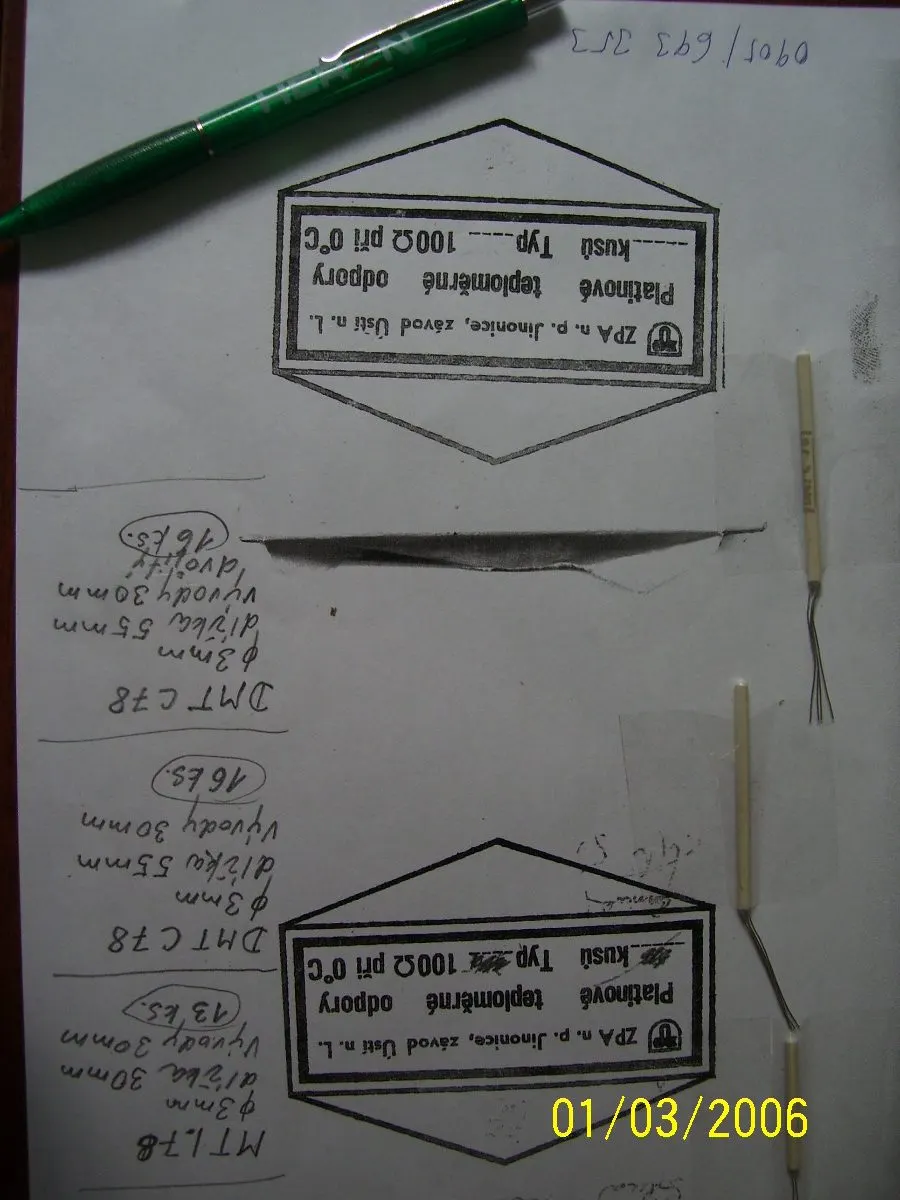 ZPA n. p. Jinonice, závod Ústí n. L.
Platinové teploměrné odpory
kusů Typ 100Ω při 0°C
MT 1.78
φ3mm
dĺžka 30mm
Vývody 30mm
13 ks.
DMT C78
φ3mm
dĺžka 55mm
Vývody 30mm
16 ks.
DMT C78
φ3mm
dĺžka 55mm
vývody 30mm
dvojitý
16 ks.
ZPA n. p. Jinonice, závod Ústí n. L.
Platinové teploměrné odpory
kusů Typ 100Ω při 0°C
01/03/2006